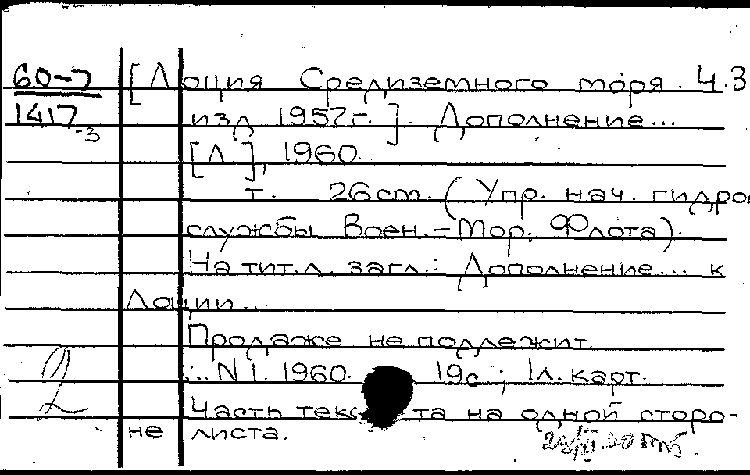 60-7 [Лоция Средиземного моря. Ч.3
1417-3 изд. 1957г.]. Дополнение...
[Л.], 1960.
т. 26 cm. (Упр. нач. гидро
службы Воен.-Мор. Флота).
На тит. л. загл.: Дополнение... к
Лоции...
Продаже не подлежит.
...N 1. 1960. 19с.; 1л. карт.
2 Часть текста на одной сторо-
не листа.